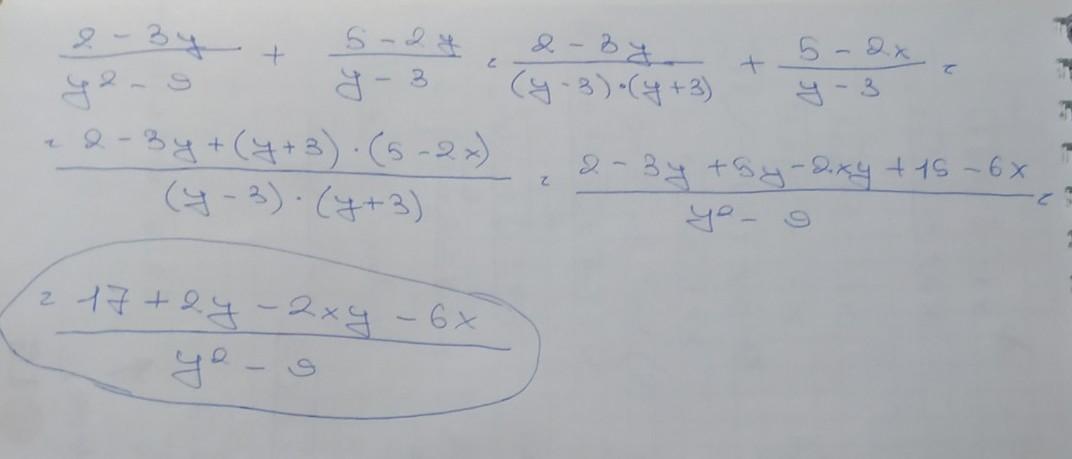 (2 - 3y)/(y² - 9) + (5 - 2y)/(y - 3) = (2 - 3y)/((y-3)·(y+3)) + (5 - 2x)/(y - 3) =
= (2 - 3y + (y+3)·(5 - 2x))/((y - 3)·(y+3)) = (2 - 3y + 5y - 2xy + 15 - 6x)/(y² - 9) =
= (17 + 2y - 2xy - 6x)/(y² - 9)